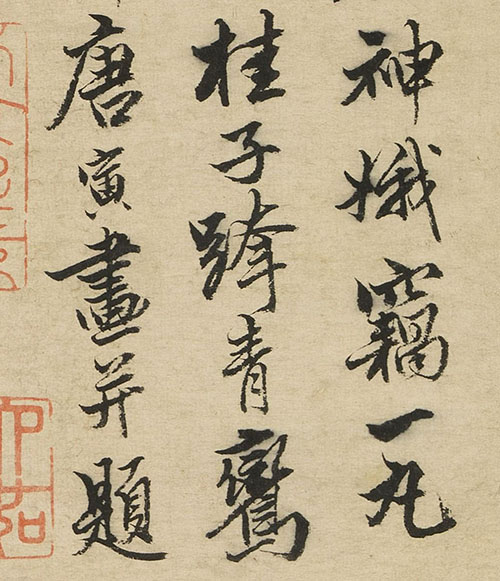 神娥竊一丸
桂子跨青鸞
唐寅畫并題